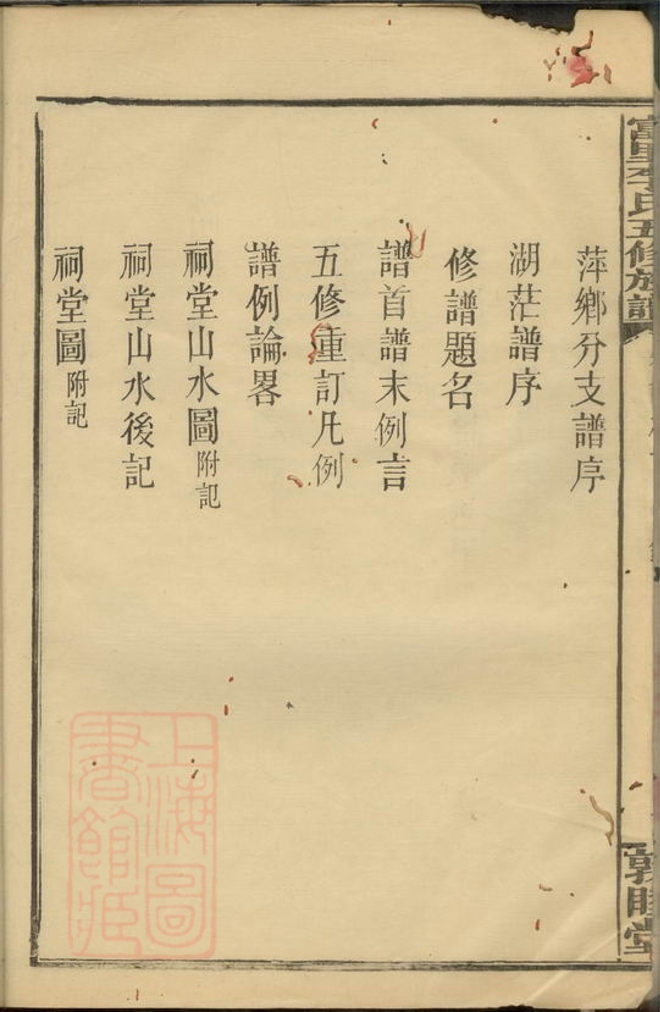 富里李氏五修族譜
敦睦堂
萍鄉分支譜序
湖茫譜序
修譜題名
譜首譜末例言
五修重訂凡例
譜例論畧
祠堂山水圖附記
祠堂山水後記
祠堂圖附記
上海圖書館藏